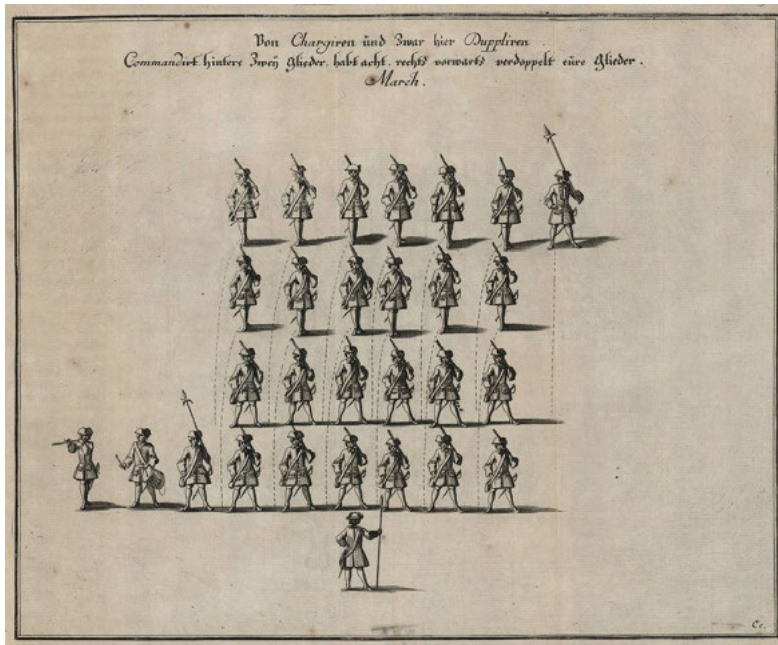 Von Chargiren und Zwar hier Duppliren
Commandirt. hintere Zweÿ Glieder. habt acht. rechts vorwarts verdoppelt eüre Glieder.
March.
Cc.